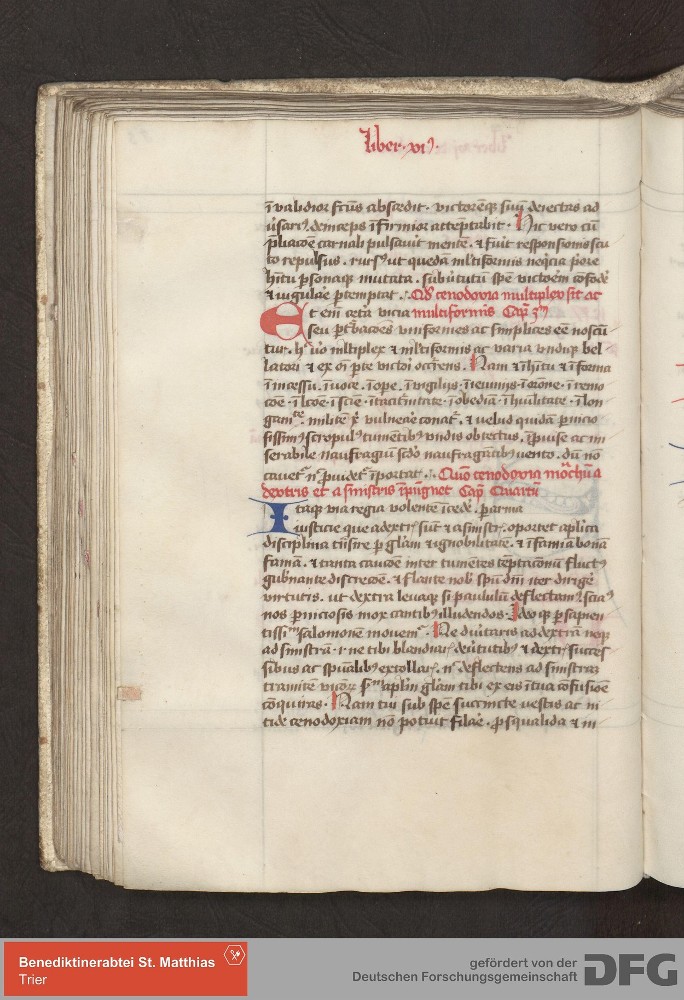 liber · xi⁹ ·
īvalidior fc̄us absc̄edit · victorēq; suū deiectus ad
ūsari⁹ deinceps īfirmior attēptabit · Hic vero cū
carnali pulsauit mentē · ⁊ fuit responsionis scu
to repulsus · rursꝰ ut quedā ml̄tiformis neq̄cia
hītu ꝑsonaq; mutata · sub ūtutū spē victorem
⁊ iugulare ꝑtemptat · Qđ cenodoxia multiplex sit ac
Et eni cetā vicia multiformis Cap̄ 3ᵐ
seu ꝑt̄bacōes vniformes ac simplices eē noscū
tur · h̓ v̓o ml̄tiplex ⁊ ml̄tiformis ac varia vndiq; bel
latori ⁊ ex oī ꝑte victori occr̄ens · Nam ⁊ ī hītu ⁊ ī forma
ī incessu · ī uoce · ī ope · ī vigilijs · ī ieiunijs · ī orōne · ī remo
cōe · ī lc̄oe · ī sciē · ī tac̄itnitate · ī obediā · ī hūilitate · ī lon
milite xp̄i vulnerare conat᷑ · ⁊ velud quidā ꝑnicio
sissim⁹ scropul⁹ tumētib⁹ vndis obtectus · īꝓuise ac mi
serabile naufragiū naufragātib⁹ vento · dū nō
cauet᷑ n̄ ꝓuidet᷑ īportat · Quō cenodoxia mōchū a
dextris et a sinistris īpugnet Cap̄ Quartū
Itaq; via regia volente īcede᷑ · ꝑ arma
iusticie que a dextr̄ sūt ⁊ a sinistr̄ · oportet ap̄lica
disciplina tn̄sire ꝑ glām ⁊ ignobilitatē · ⁊ īfamiā bonā
famā · ⁊ tanta caucōe inter tumētes tēptacōnū fluct⁹
gub̄nante discrecōe · ⁊ flante nob̄ sp̄u dn̄i iter dirige᷑
virtutis · ut dextra leuaq; si paululū deflectam᷑ scia⁹
nos ꝑniciosis mox cautib⁹ illudendos · Ideoq; ꝑ sapien
tissi᷑ᵐ salomonem mouem᷑ · Ne diūtaris ad dextrā neq;
ad sinistrā · i · ne tibi blandiar̄ de ūtutib⁹ ⁊ dextr̄ succes
sibus ac sp̄ualib⁹ extollar̄ · n̄ deflectens ad sinistrā
tramitē vicior̄ ap̄lm glām tibi ex eis ī tua cōfusiōe
cōquiras · Nam cui sub spē succincte vestis ac ni
tide cenodoxiam nō potuit · ꝓ squalida ⁊ in
Benediktinerabtei St. Matthias
Trier
gefördert von der
Deutschen Forschungsgemeinschaft
DFG